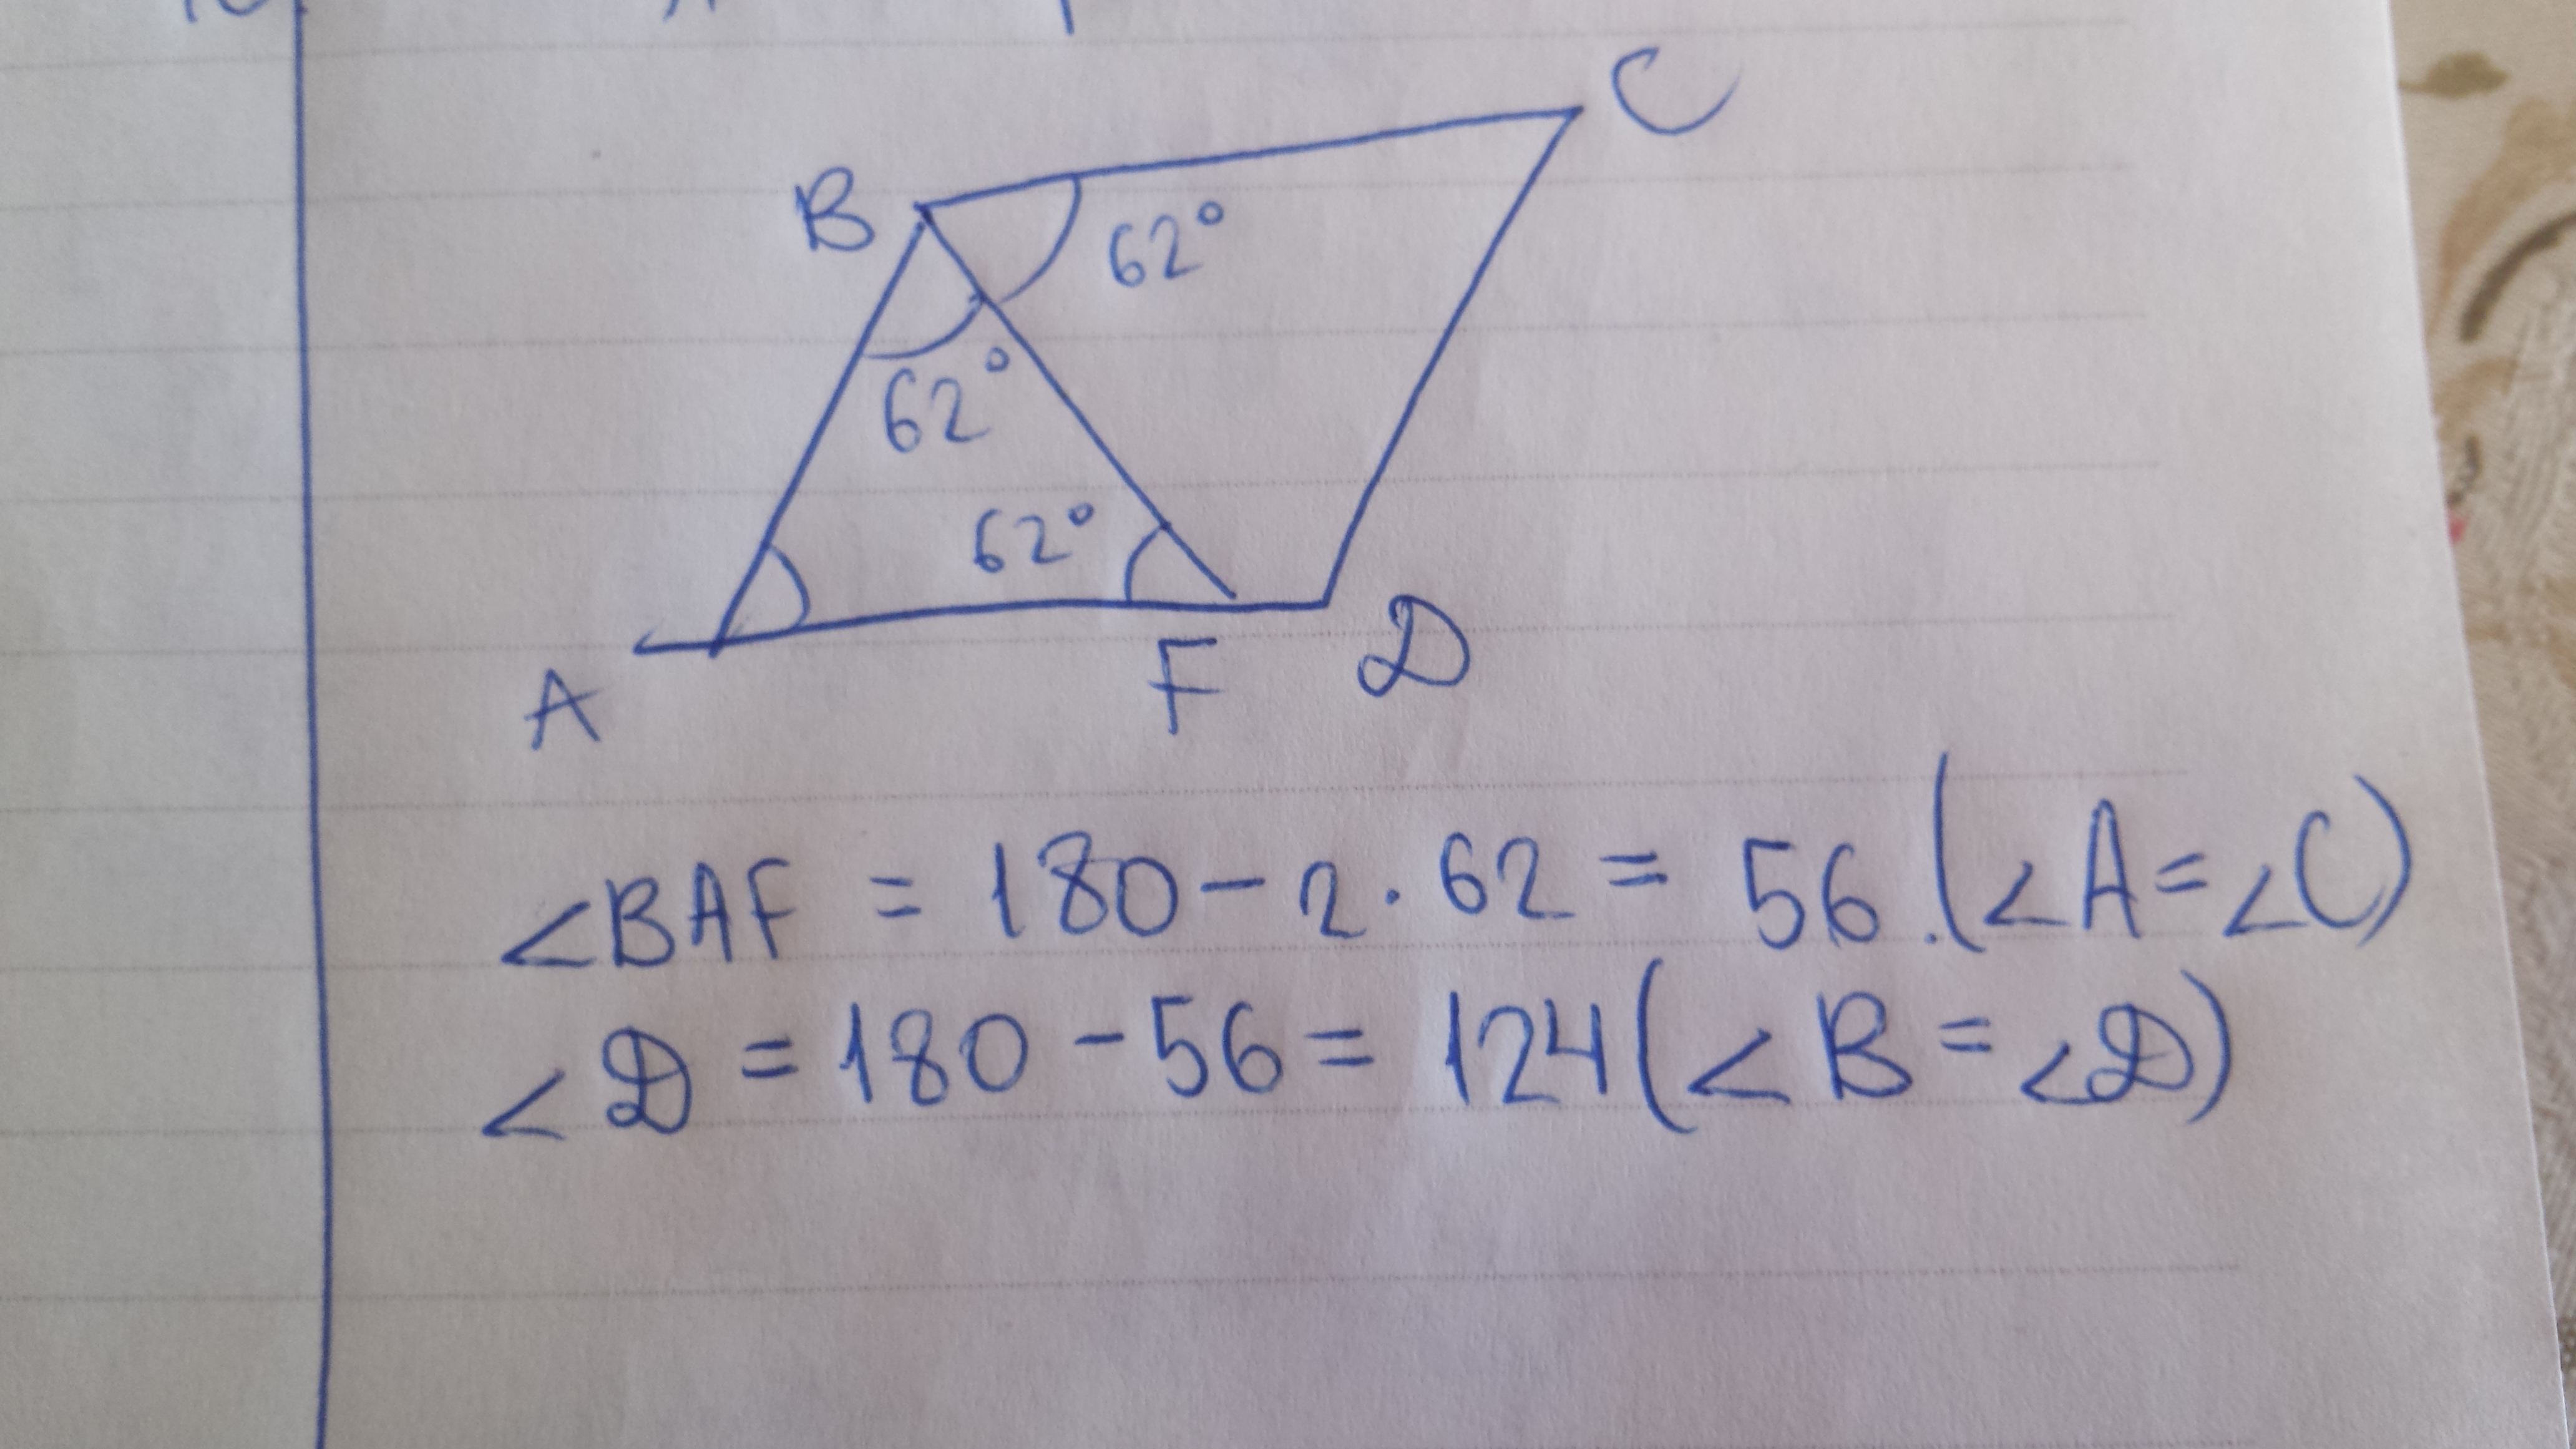 B
C
62°
62°
62°
A
F
D
∠BAF = 180 - 2 · 62 = 56. (∠A = ∠C)
∠D = 180 - 56 = 124 (∠B = ∠D)